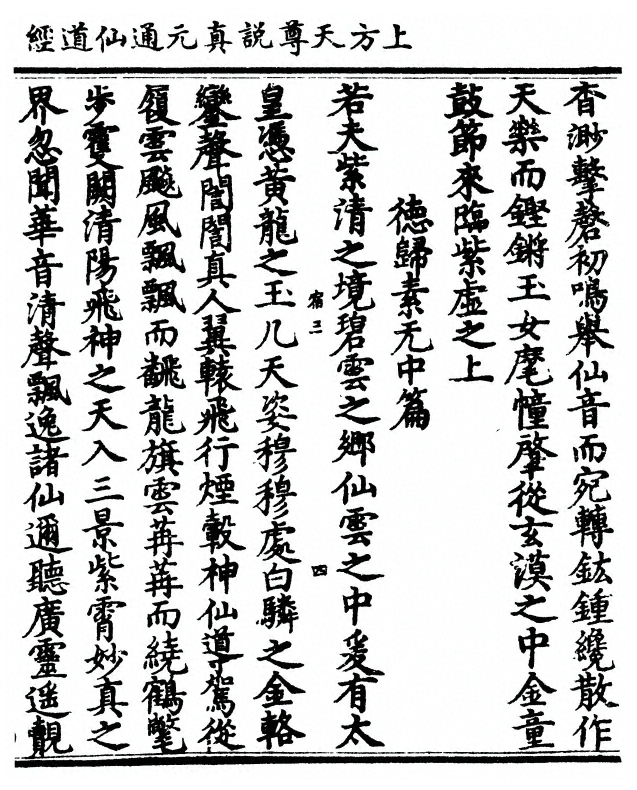 上方天尊説真元通仙道經
杳渺擊磬初鳴舉仙音而宛轉鈜鍾纔散作
天樂而鏗鏘玉女麾幢肇從玄漠之中金童
鼓節來臨紫虛之上
德歸素无中篇
若夫紫清之境碧雲之鄉仙雲之中爰有太
宿三
四
皇憑黄龍之玉几天姿穆穆處白驎之金輅
鸞聲誾誾真人翼轅飛行煙轂神仙道駕從
履雲飈風飄飄而翻龍旗雲苒苒而繞鶴氅
步夐闕清陽飛神之天入三景紫霄妙真之
界忽聞華音清聲飄逸諸仙邇聽廣靈遥覩